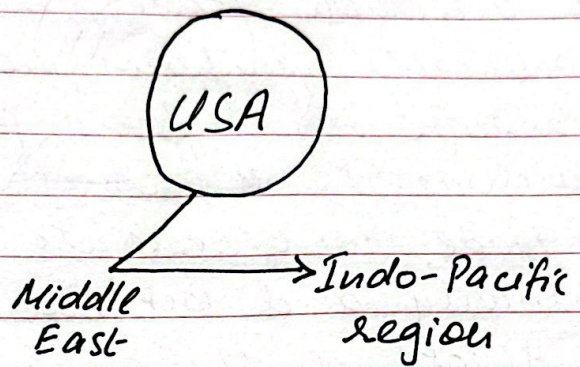 USA
Middle
East
Indo-Pacific
region